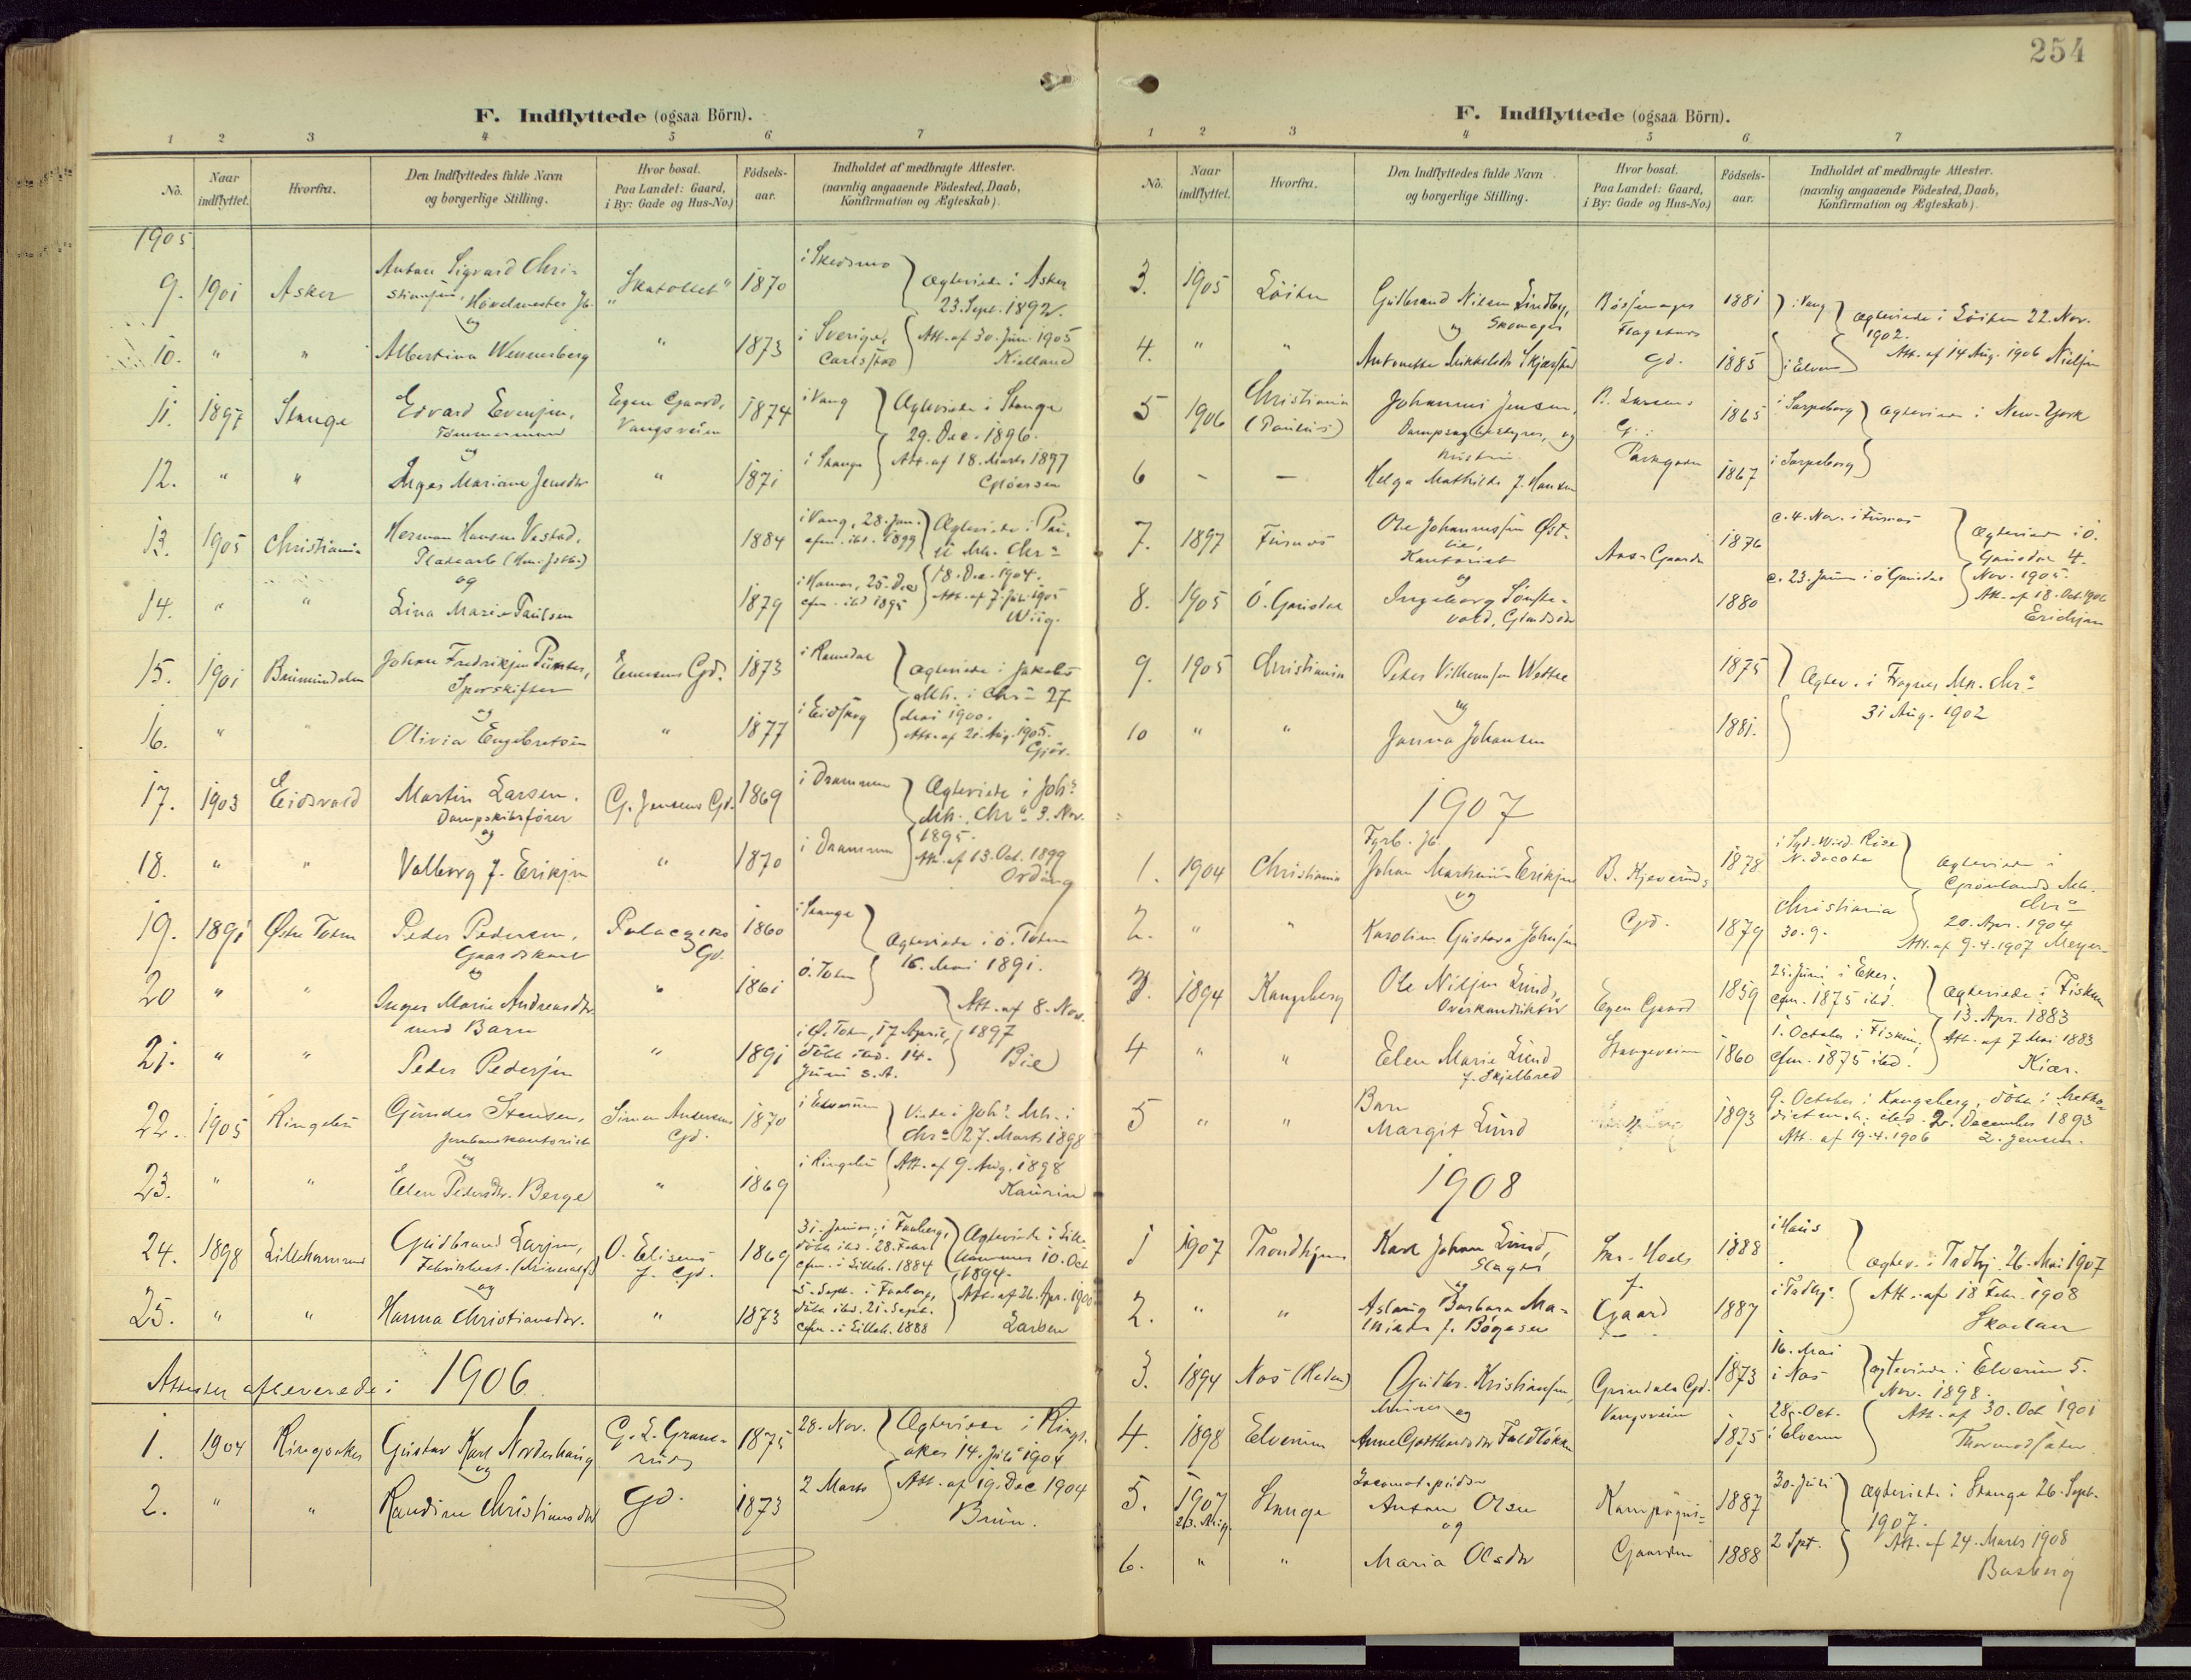 254
F. Indflyttede (ogsaa Börn).
1 2 3 4 5 6 7
No. Naar indflyttet. Hvorfra. Den Indflyttedes fulde Navn og borgerlige Stilling. Hvor bosat. Paa Landet: Gaard, i By: Gade og Hus-No.) Födsels-aar. Indholdet af medbragte Attester. (navnlig angaaende Födested, Daab, Konfirmation og Ægteskab).
1905
9. 1901 Asker Anton Sigvard Chri- "Skatollet" 1870 i Skedsmo Ægteviede i Asker
stiansen, Hovelmester Jb. 23. Sept. 1892.
og
10. " " Albertina Wennersberg " 1873 i Sverige, Att. af 30. Juni 1905
Carlsstad Kielland
11. 1897 Stange Edvard Evensen, Egen Gaard, 1874 i Vang Ægteviede i Stange
Tømmermand Vangsveien 29. Dec. 1896.
og
12. " " Inger Mariane Jensdtr " 1871 i Stange Att. af 18. Marts 1897
Gløersen
13. 1905 Christiania Herman Hansen Vestad, 1884 i Vang, 28. Jan. Ægteviede i Pau-
cfm. ibd. 1899 li Mh. Chr.a
og
14. " " Lina Marie Paulsen 1879 i Hamar, 25. Dec 18. Dec. 1904.
cfm. ibd 1895 Att. af 7. Juli 1905
Wiig.
15. 1901 Brumundalen Johan Fredriksen Punter, Emersens Gd. 1873 i Romsdal Ægteviede i Jakobs
Sporskifter Mh. i Chr.a 27
og
16. " " Olivia Engebretsen " 1877 i Eidskog Mai 1900.
Att. af 21. Aug. 1905.
17. 1903 Eidsvold Martin Larsen, G. Jensens Gd. 1869 i Drammen Ægteviede i Joh.s
Dampskibsfører Mh. Chr.a 3. Nov.
og 1895.
18. " " Valborg f. Eriksen " 1870 i Drammen Att. af 13. Oct. 1899
Ording
19. 1891 Østre Toten Peder Pedersen, Palæets 1860 i Stange Ægteviede i ø. Toten
Gaardskarl Gd. 16. Mai 1891.
og
20 " " Inger Marie Andreasdtr " 1861 ø. Toten Att. af 8. Nov.
med Barn 1897
21. " " Peder Pedersen " 1891 i Ø. Toten, 17 April, Bie
døbt ibd. 14.
Juni s. A.
22. 1905 Ringebu Gunder Stensen, Simen Andersens 1870 i Elverum Viede i Joh.s Mh. i
Jernbanekontorist Gd. Chr.a 27. Marts 1898
og
23. " " Elen Pedersdtr. Berge " 1869 i Ringebu Att. af 9. Aug. 1898
Kaurin
24. 1898 Lillehammer Gudbrand Larsen, O. Elisens 1869 31. Januar, i Faaberg, Ægteviede i Lille-
f. Gd. døbt ibd. 28. Febr. hammer 10. Oct
og cfm. i Lilleh. 1884 1894.
25. " " Hanna Christiansdtr. " 1873 5. Septb. i Faaberg, Att. af 26. Apr. 1900
døbt ibd. 21. Septb. Larsen
cfm. i Lilleh. 1888
Attester afleverede i 1906
1. 1904 Ringsaker Gustav Karl Nordenhaug G. L. Grane- 1875 28. Nov. Ægteviede i Rings-
og ruds aker 14. Juli 1904
2. " " Randine Christiansdtr Gd. 1873 2 Marts Att. af 19. Dec 1904
Bruun.
F. Indflyttede (ogsaa Börn).
1 2 3 4 5 6 7
No. Naar indflyttet. Hvorfra. Den Indflyttedes fulde Navn og borgerlige Stilling. Hvor bosat. Paa Landet: Gaard, i By: Gade og Hus-No.) Födsels-aar. Indholdet af medbragte Attester. (navnlig angaaende Födested, Daab, Konfirmation og Ægteskab).
3. 1905 Löiten Gudbrand Nilsen Lindberg, Bøssemager 1881 i Vang Ægteviede i Löiten 22. Nov.
og Skomager Flagstads 1902.
4. " " Antonette Mikkelsdtr Gd. 1885 i Elverum Att. af 14 Aug. 1906 Nielsen
5 1906 Christiania Johannes Jensen, P. Larsens 1865 i Sarpsborg Ægteviede i New-York
(Paulus) Dampsagbestyrer, og G.
Hustru Parkgaden
6 - - Helga Mathilde f. Hansen 1867 i Sarpsborg
7. 1897 Furnes Ole Johannessen Øst- Aas-Gaarden 1876 c. 4. Nov. i Furnes Ægteviede i ö.
lie, Gausdal 4.
Kontorist Nov. 1905.
og
8. 1905 Ö. Gausdal Ingeborg Sønste- 1880 c. 23. Juni i ö Gausdal Att. af 18. Oct. 1906
vold, Erichsen
9. 1905 Christiania Peter Vilhelmsen Wettre 1875 Ægtev. i Frogner Mh. Chr.a
og 31 Aug. 1902
10 " " Janna Johansen 1881.
1907
Fyrb. Jb.
1. 1904 Christiania Johan Martinius Eriksen B. Kjeveruds 1878 i Syd-Wird Rise Ægteviede i
og N. Dacota Grønlands Mh.
Chr.a
2. " " Karoline Gustava Johnsen Gd. 1879 Christiania 20. Apr. 1904
30. 9. Att. af 9.4.1907 Meyer
3. 1894 Kongsberg Ole Nilsen Lund, Egen Gaard 1859 25. Juni i Eker, Ægteviede i Fiskum
Overkonduktør cfm. 1875 ibd. 13. Apr. 1883
4 " " Elen Marie Lund Stangeveien 1860 1. October i Fiskum, Att. af 7 Mai 1883
f. Skjelbred cfm. 1875 ibd. Kiær.
Barn
5 " " Margit Lund " 1893 9. October i Kongsberg, døbt i Metho-
distm. k. ibd. 2. December 1893
Att. af 19.4.1906 L. Jensen.
1908
1 1907 Trondhjem Karl Johan Lund, Snr. Hoels 1888 i Haus Ægtev. i Trdhj. 26. Mai 1907
Slagter
og f.
2. " " Aslaug Barbara Ma- Gaard 1887 i Trdhj. Att. af 18 Febr. 1908
thilde f. Bøgesen
3. 1894 Nes (Hedm) Gudbr. Kristiansen, Grindals Gd. 1873 16. Mai i Nes Ægteviede i Elverum 5.
Murer og Vangsveien Nov. 1898.
4. 1898 Elverum Anne Gotthardsdtr Fuldløkken 1875 28. Oct. i Elverum Att. af 30. Oct 1901
Thormodsæter
5. 1907 Stange Locomot. pudser Kampegus- 1887 30. Juli Ægteviede i Stange 26. Sept.
23. Aug. Anton Olsen 1907.
og
6. " " Maria Olsdtr Gaarden 1888 2 Spt. Att. af 24. Marts 1908
Basberg